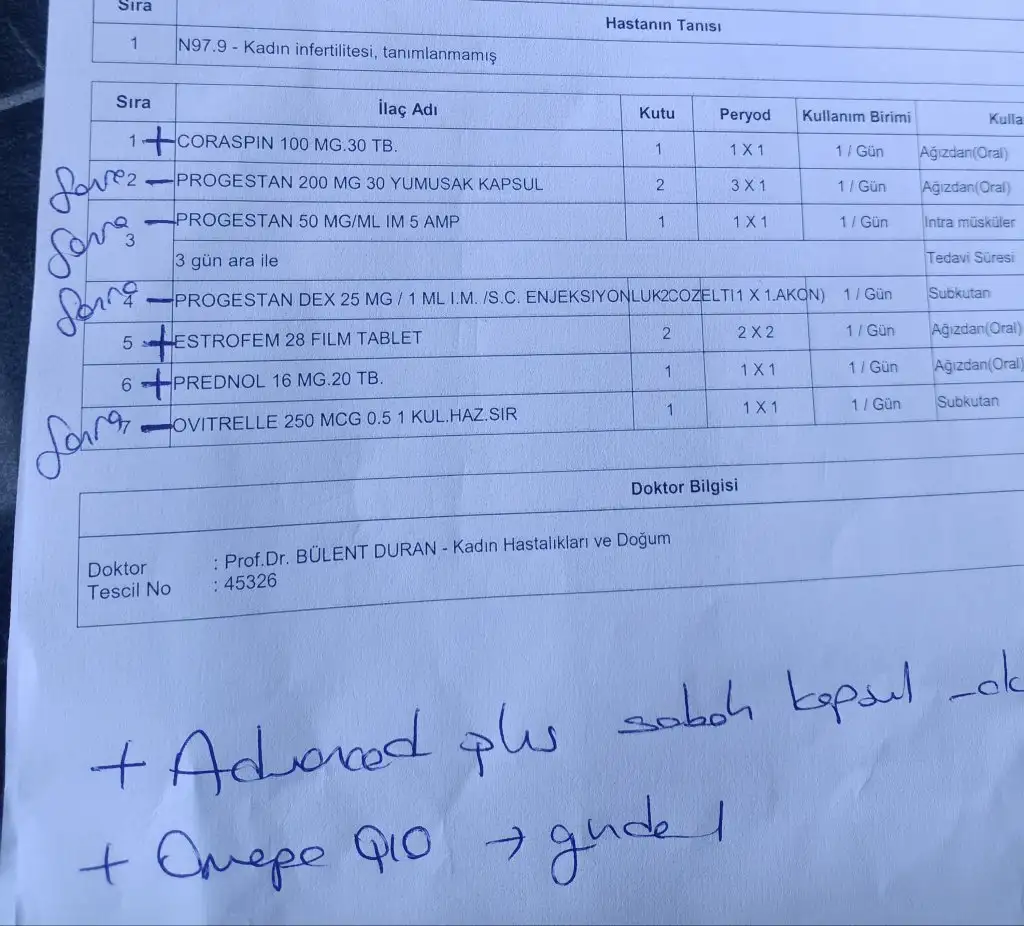 Sıra
Hastanın Tanısı
1 N97.9 - Kadın infertilitesi, tanımlanmamış
Sıra İlaç Adı Kutu Peryod Kullanım Birimi Kulla
1 + CORASPIN 100 MG.30 TB. 1 1 X 1 1 / Gün Ağızdan(Oral)
Sonra 2 — PROGESTAN 200 MG 30 YUMUSAK KAPSUL 2 3 X 1 1 / Gün Ağızdan(Oral)
Sonra 3 — PROGESTAN 50 MG/ML IM 5 AMP 1 1 X 1 1 / Gün Intra müsküler
3 gün ara ile Tedavi Süresi
Sonra 4 — PROGESTAN DEX 25 MG / 1 ML I.M. /S.C. ENJEKSIYONLUK2COZELTI1 X 1.AKON) 1 / Gün Subkutan
5 + ESTROFEM 28 FILM TABLET 2 2 X 2 1 / Gün Ağızdan(Oral)
6 + PREDNOL 16 MG.20 TB. 1 1 X 1 1 / Gün Ağızdan(Oral)
Sonra 7 — OVITRELLE 250 MCG 0.5 1 KUL.HAZ.SIR 1 1 X 1 1 / Gün Subkutan
Doktor Bilgisi
Doktor : Prof.Dr. BÜLENT DURAN - Kadın Hastalıkları ve Doğum
Tescil No : 45326
+ Advanced plus sabah kapsul
+ Omepa Q10 → günde 1